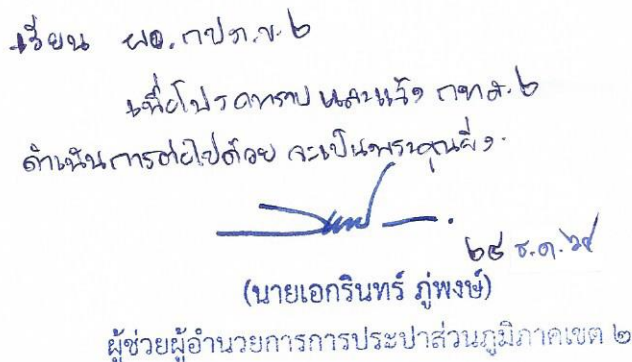 เรียน ผอ.กปภ.ข.๒
เพื่อโปรดทราบ และแจ้ง กทส.๒
ดำเนินการต่อไปด้วย จะเป็นพระคุณยิ่ง.
๒๔ ธ.ค. ๖๔
(นายเอกรินทร์ ภู่พงษ์)
ผู้ช่วยผู้อำนวยการการประปาส่วนภูมิภาคเขต ๒